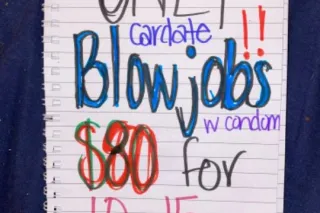 ONLY
cardate
Blowjobs!!
w condom
$80 for